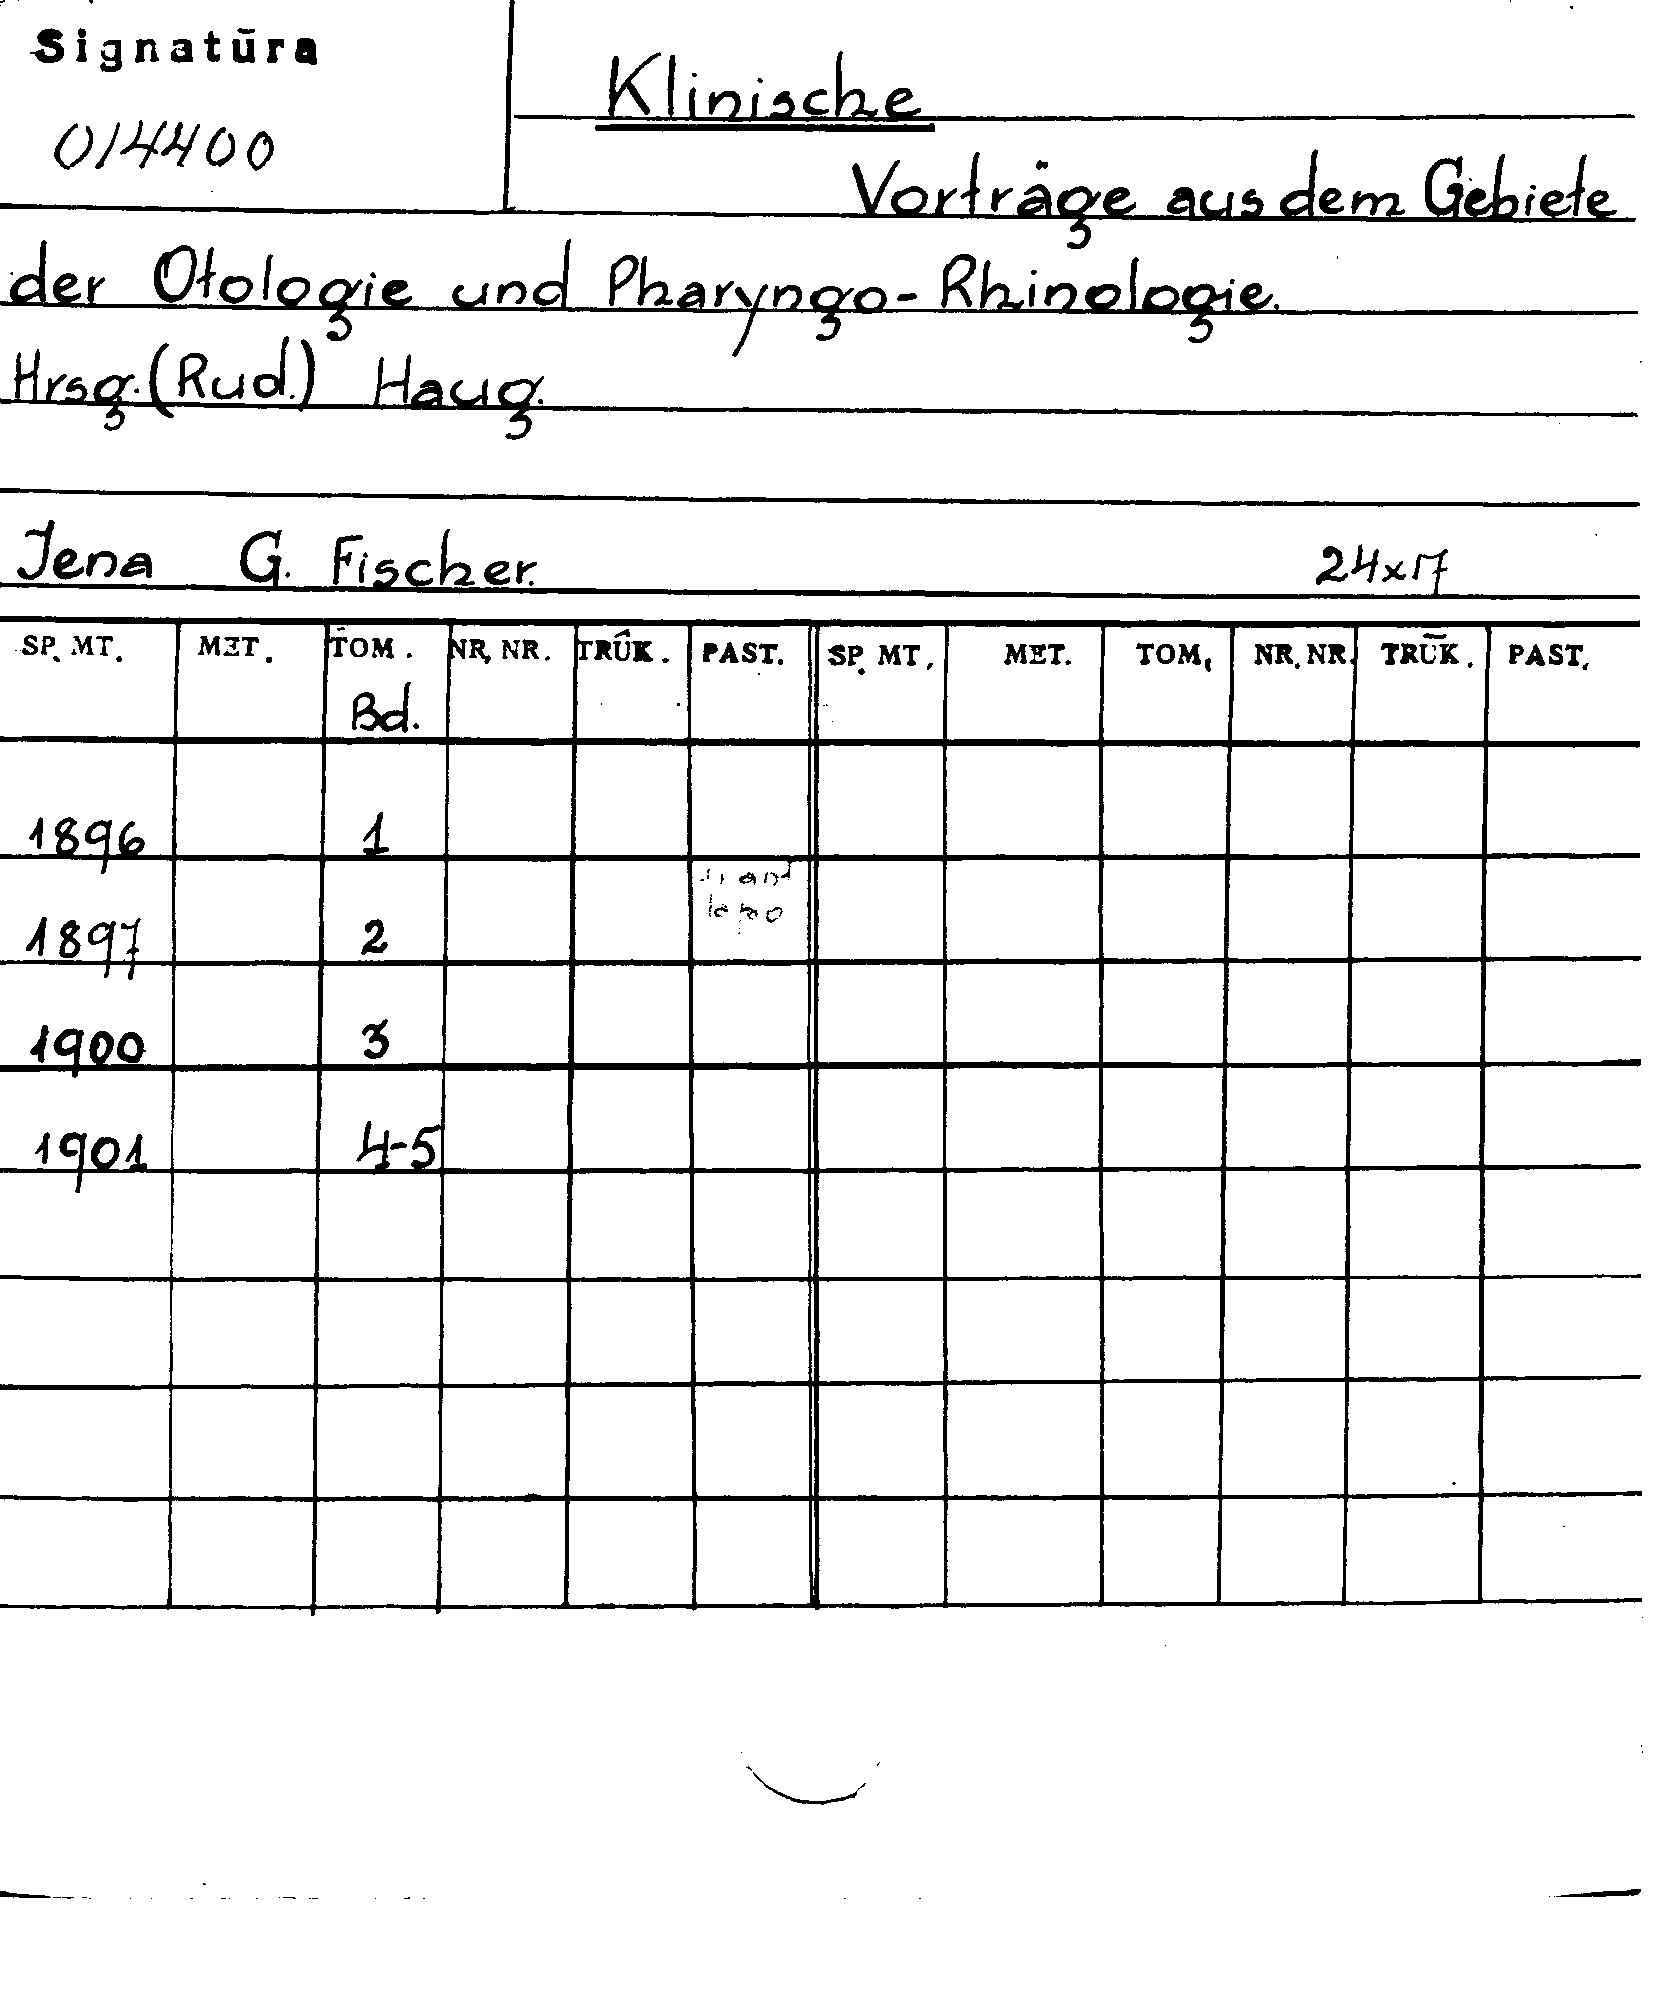 Signatūra
014400
Klinische
Vorträge aus dem Gebiete
der Otologie und Pharyngo-Rhinologie.
Hrsg. (Rud.) Haug.
Jena G. Fischer. 24x17
SP. MT. MET. TOM. NR. NR. TRŪK. PAST. SP. MT. MET. TOM. NR. NR. TRŪK. PAST.
Bd.
1896 1
1897 2
1900 3
1901 4-5